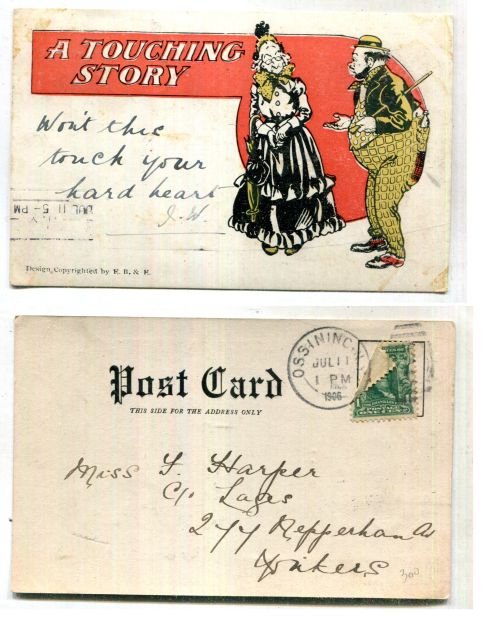 A TOUCHING
STORY
Won't this
touch your
hard heart
J.W.
JUL 11 5 - PM
N.Y.
Design Copyrighted by F. B. & E.
OSSINING
JUL 11
1 PM
1906
Post Card
THIS SIDE FOR THE ADDRESS ONLY
POSTAGE
ONE CENT
Miss F. Harper
C/o Lages
277 Nepperhan Av
Yonkers
300